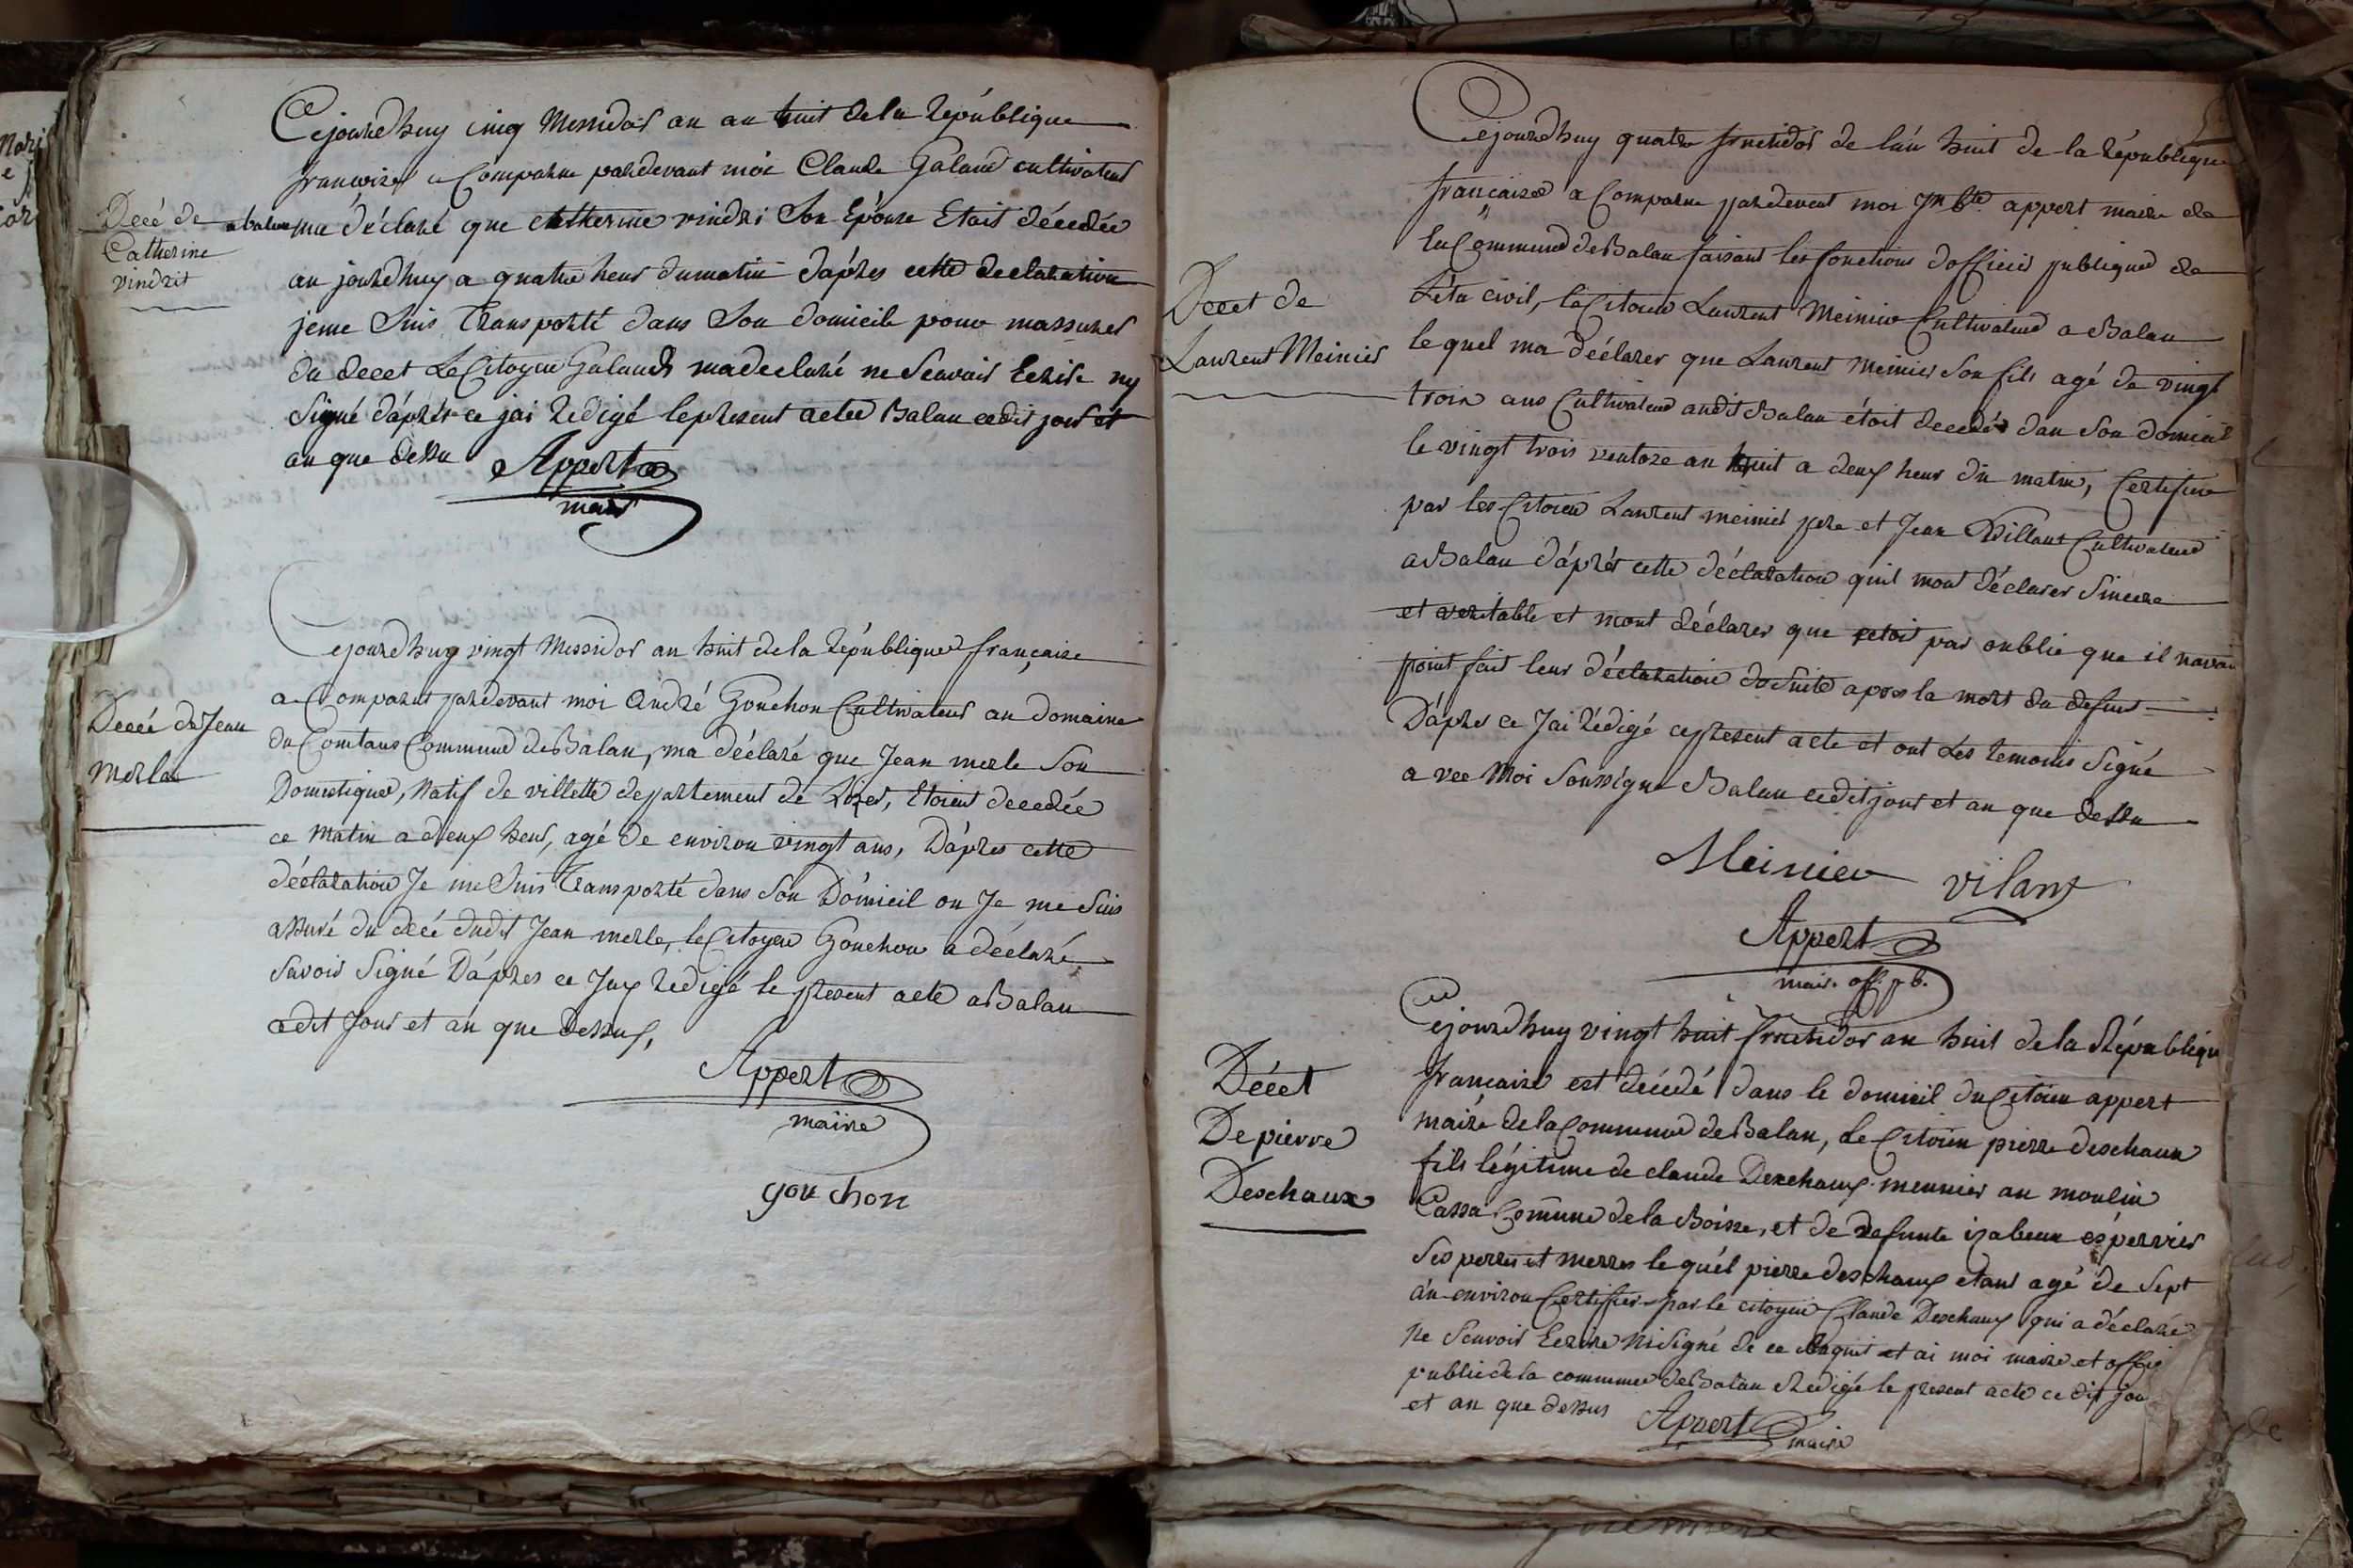 Decé de
Catherine
vindrit
Cejourdhuy cinq Messidor an an huit de la République
francoise a Comparue pardevant moi Claude Galand cultivateur
a balan ma déclaré que Catherine vindri Son Epouse Etait décedée
au jourdhuy a quatre heur du matin dáprès cette declaration
jeme Suis Transporté dans Son domicile pour massurer
du decet Le Citoyen Galand madeclaré ne Scavoir Ecrire ny
Signé dáprés ce jai rédigé le present acte a Balan cedit jour et
an que dessu
Appert
maire
Decée de Jean
merle
Cejourdhuy vingt Messidor an huit de la République française
a Comparut pardevant moi André Gouchon Cultivateur au domaine
du Comtans Commune de Balan, ma déclaré que Jean merle Son
Domestique, Natif de villette departement de Lizer, Etoient decedée
ce matin a deux heur, agé de environ vingt ans, Dáprès cette
déclaration Je me Suis Transporté dans Son Domicil ou Je me Suis
assuré du decé dudit Jean merle, le Citoyen Gouchon a déclaré
Savoir Signé Dáprès ce Jay redigé le present acte a Balan
cedit Jour et an que Dessus,
Appert
maire
gouchon
Decet de
Laurent Meinier
Cejourdhuy quatre fructidor de l'an huit de la République
française a Comparue pardevent moi Jn Bte appert maire de
la Commune de Balan faisant les fonctions dofficier publique de
L'éta civil, le Citoien Laurent Meinier Cultivateur a Balan
le quel ma déclarer que Laurent Meinier Son fils agé de vingt
trois ans Cultivateur audit Balan étoit decedér dan Son domicil
le vingt trois ventose an huit a deux heur du matin, Certifier
par les Citoien Laurent meinier pere et Jean Villant Cultivateur
a Balan dáprés cette déclaration quil mont déclarer Sincere
et veritable et mont déclarer que cetoit par oublie que il navoi
point fait leur déclaration de Suite apres la mort du defunt
Dáprès ce Jai rédigé ce present acte et ont Les temoins Signé
a vec Moi Soussigne Balan cedit jour et an que dessu
Meinier vilant
Appert
mair. off. pb.
Décet
De pierre
Deschaux
Cejourdhuy vingt huit fructidor an huit de la République
francaise est decédé dans le domicil du Citoien appert
maire de la Commune de Balan, Le Citoien pierre deschaux
fils légitime de claude Deschaux meunier au moulin
Cassa Commune de la Boisse, et de defunte izabeau éspervier
Ses perres et merres le quél pierre deschaux etant agé de Sept
án environ Certifier par le citoyen Claude Deschaux qui a déclaré
Ne Scavoir Ecrire Ni Signé de ce Requit et ai moi maire et offic
public de la commune de Balan Redigé le present acte ce dit jou
et an que dessus
Appert
maire